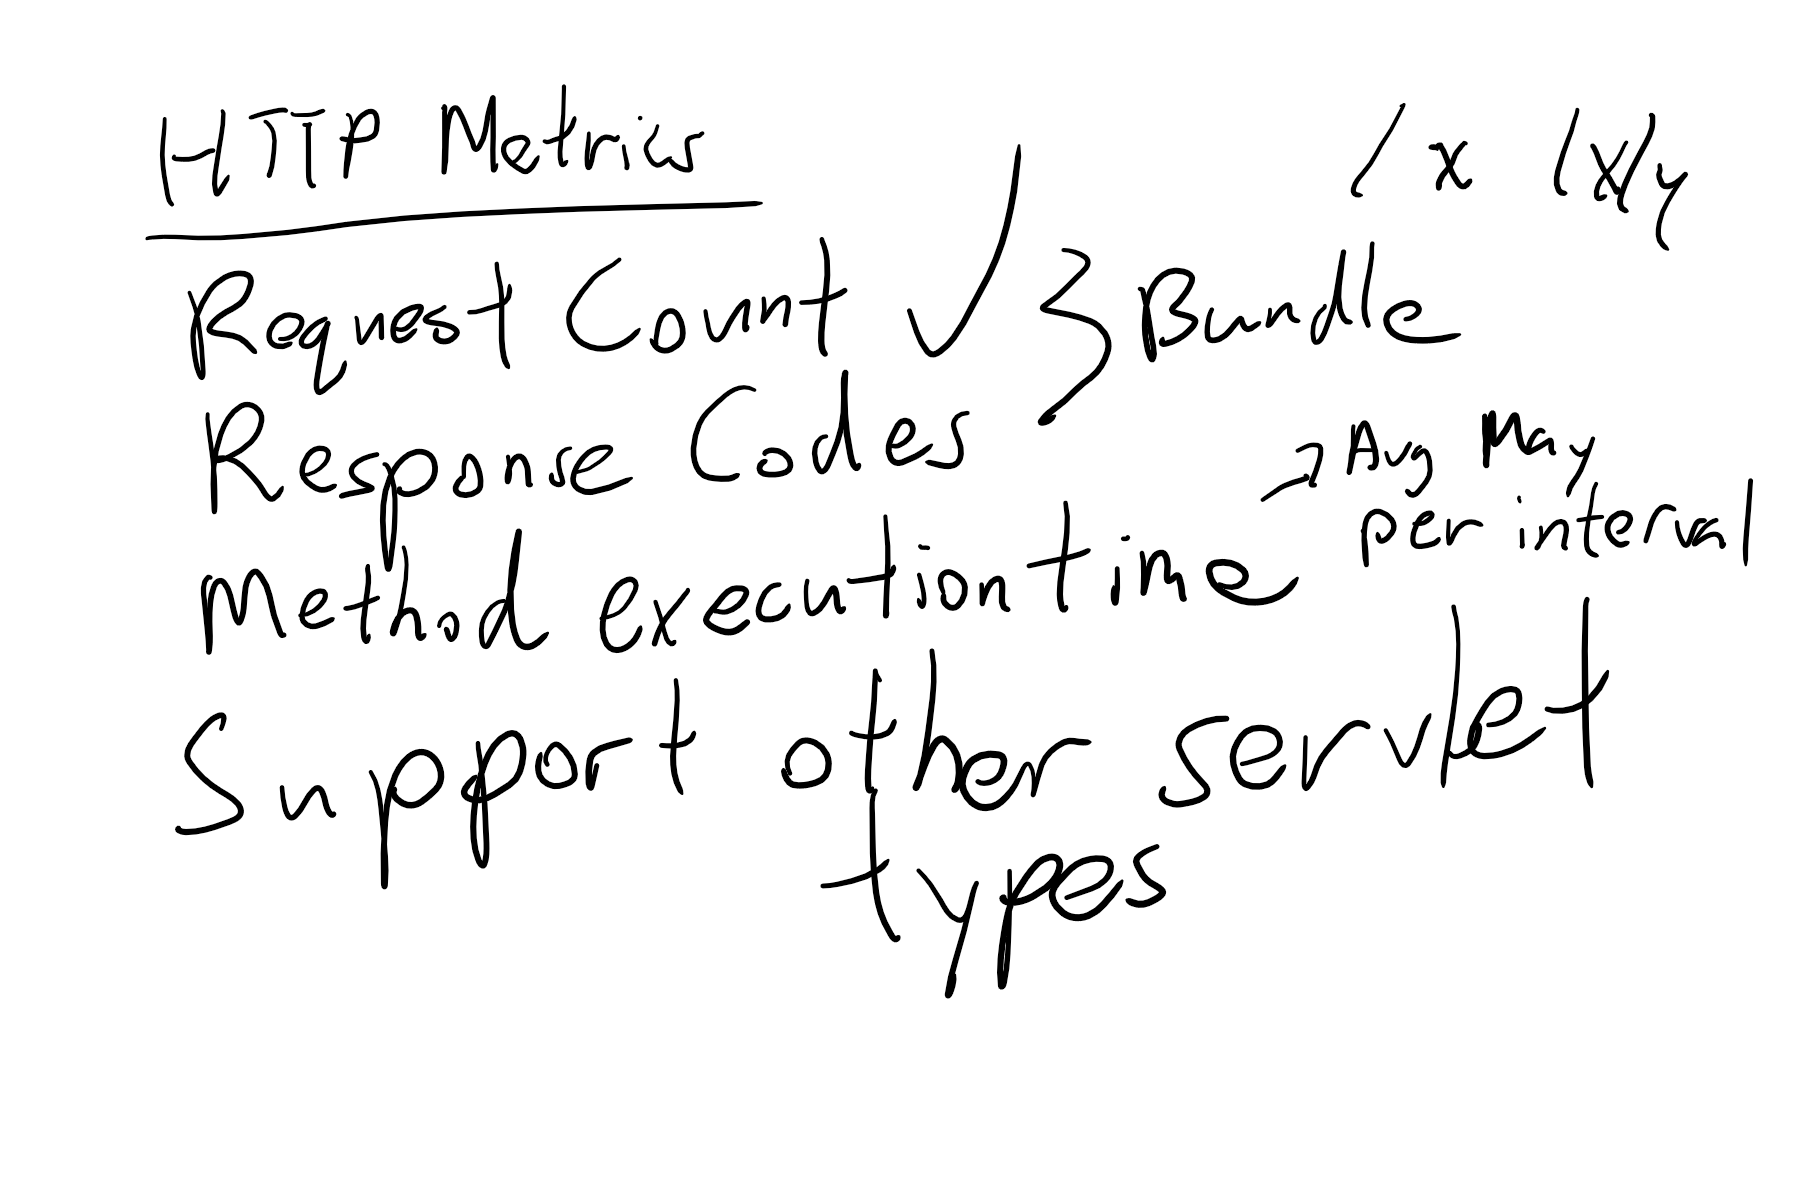 HTTP Metrics
/x /x/y
Request Count ✓ } Bundle
Response Codes
Method execution time → Avg May
per interval
Support other servlet
types